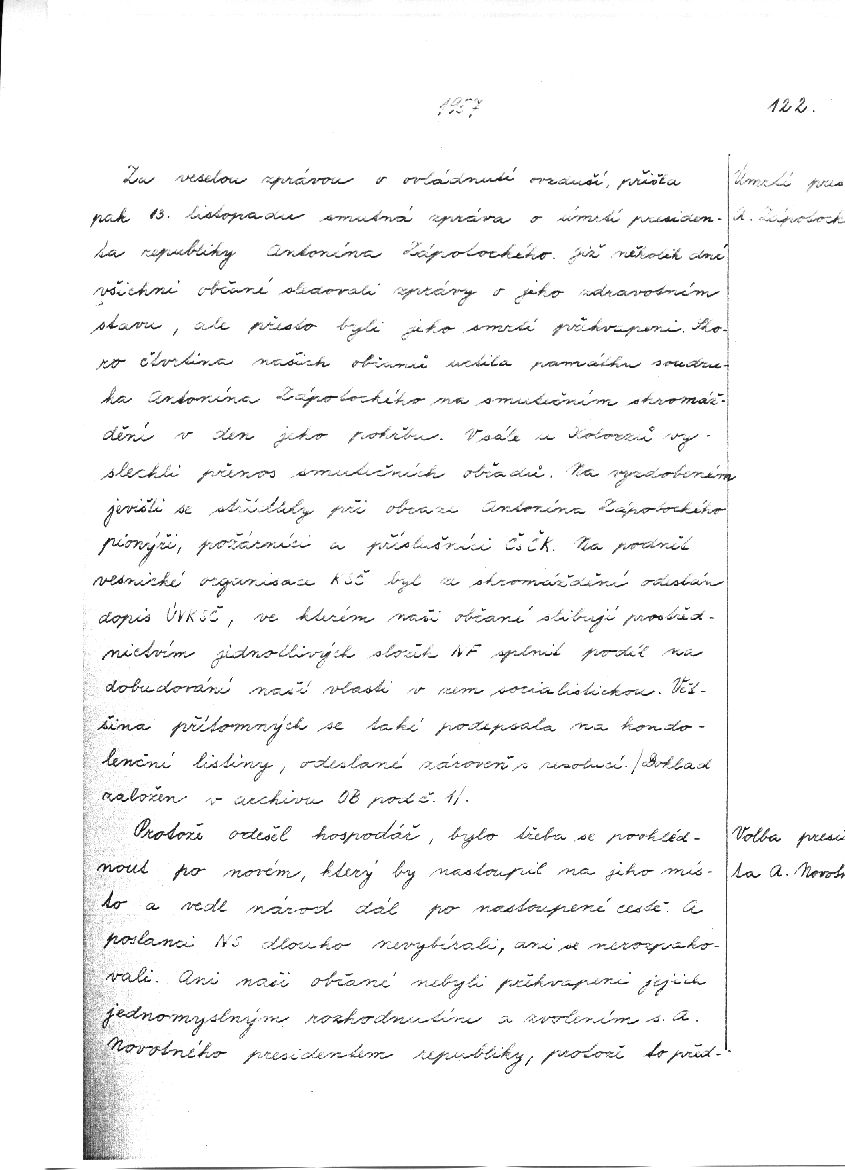 1957
122.
Za veselou zprávou o ovládnutí ovzduší, přišla
pak 13. listopadu smutná zpráva o úmrtí presiden-
ta republiky Antonína Zápotockého. Již několik dní
všichni občané sledovali zprávy o jeho zdravotním
stavu, ale přesto byli jeho smrtí překvapeni. Sko-
ro čtvrtina našich občanů uctila památku soudru-
ha Antonína Zápotockého na smutečním shromáž-
dění v den jeho pohřbu. V sále u Kotorzů vy-
slechli přenos smutečních obřadů. Na vyzdobeném
jevišti se střídaly při obraze Antonína Zápotockého
pionýři, požárníci a příslušníci ČSČK. Na podnět
vesnické organisace KSČ byl ze shromáždění odeslán
dopis ÚVKSČ, ve kterém naši občané slibují prostřed-
nictvím jednotlivých složek NF splnit podíl na
dobudování naší vlasti v zem socialistickou. Vět-
šina přítomných se také podepsala na kondo-
lenční listiny, odeslané zároveň s resolucí. /Doklad
založen v archivu OB pod č. 1/.
Protože odešel hospodář, bylo třeba se poohléd-
nout po novém, který by nastoupil na jeho mís-
to a vedl národ dál po nastoupené cestě. A
poslanci NS dlouho nevybírali, ani se nerozpako-
vali. Ani naši občané nebyli překvapeni jejich
jednomyslným rozhodnutím a zvolením s. A.
Novotného presidentem republiky, protože to před-
Úmrtí pres
A. Zápotock
Volba presi
ta A. Novotn